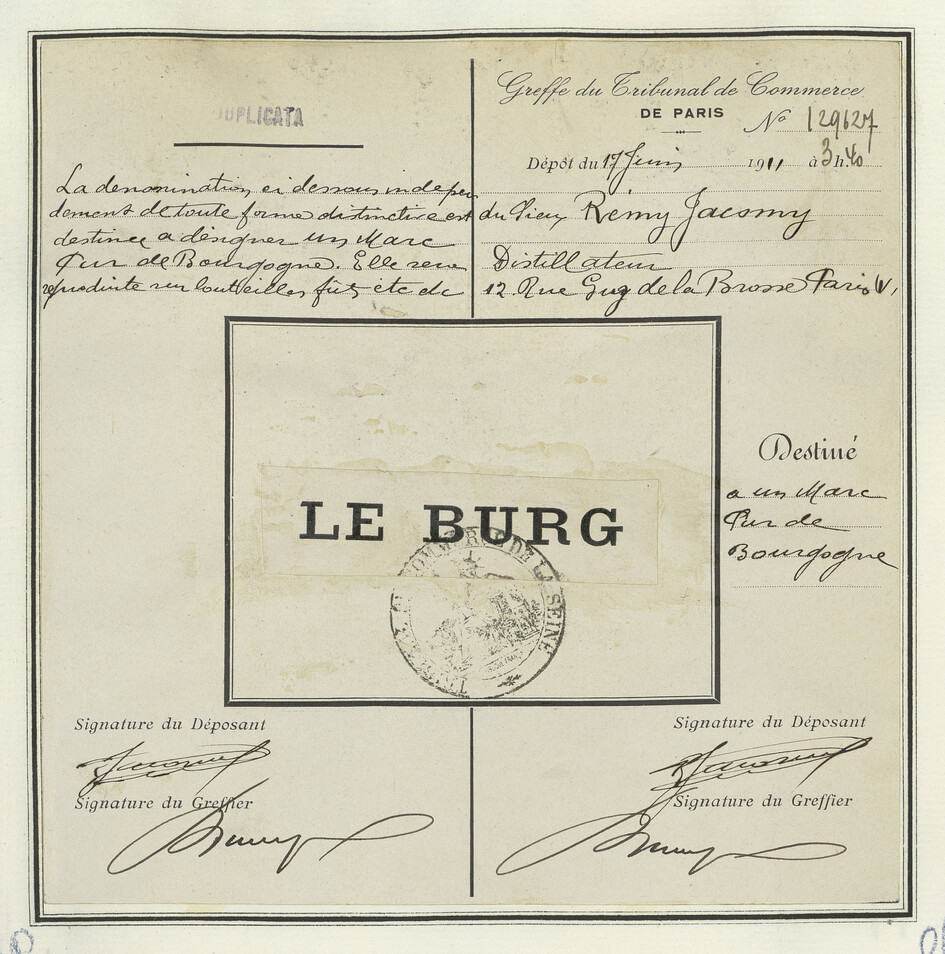 DUPLICATA
La denomination ci dessous indepen
demment de toute forme distinctive est
destinee a désigner un Marc
Pur de Bourgogne. Elle sera
reproduite sur bouteilles fûts etc etc
Greffe du Tribunal de Commerce
DE PARIS
No 129627
Dépôt du 17 Juin 1911 à 3 h. 40
du Sieur Rémy Jacomy
Distillateur
12 Rue Guy de la Brosse Paris V,
LE BURG
TRIBUNAL DE COMMERCE DE LA SEINE
Destiné
a un Marc
Pur de
Bourgogne
Signature du Déposant
Signature du Greffier
Signature du Déposant
Signature du Greffier